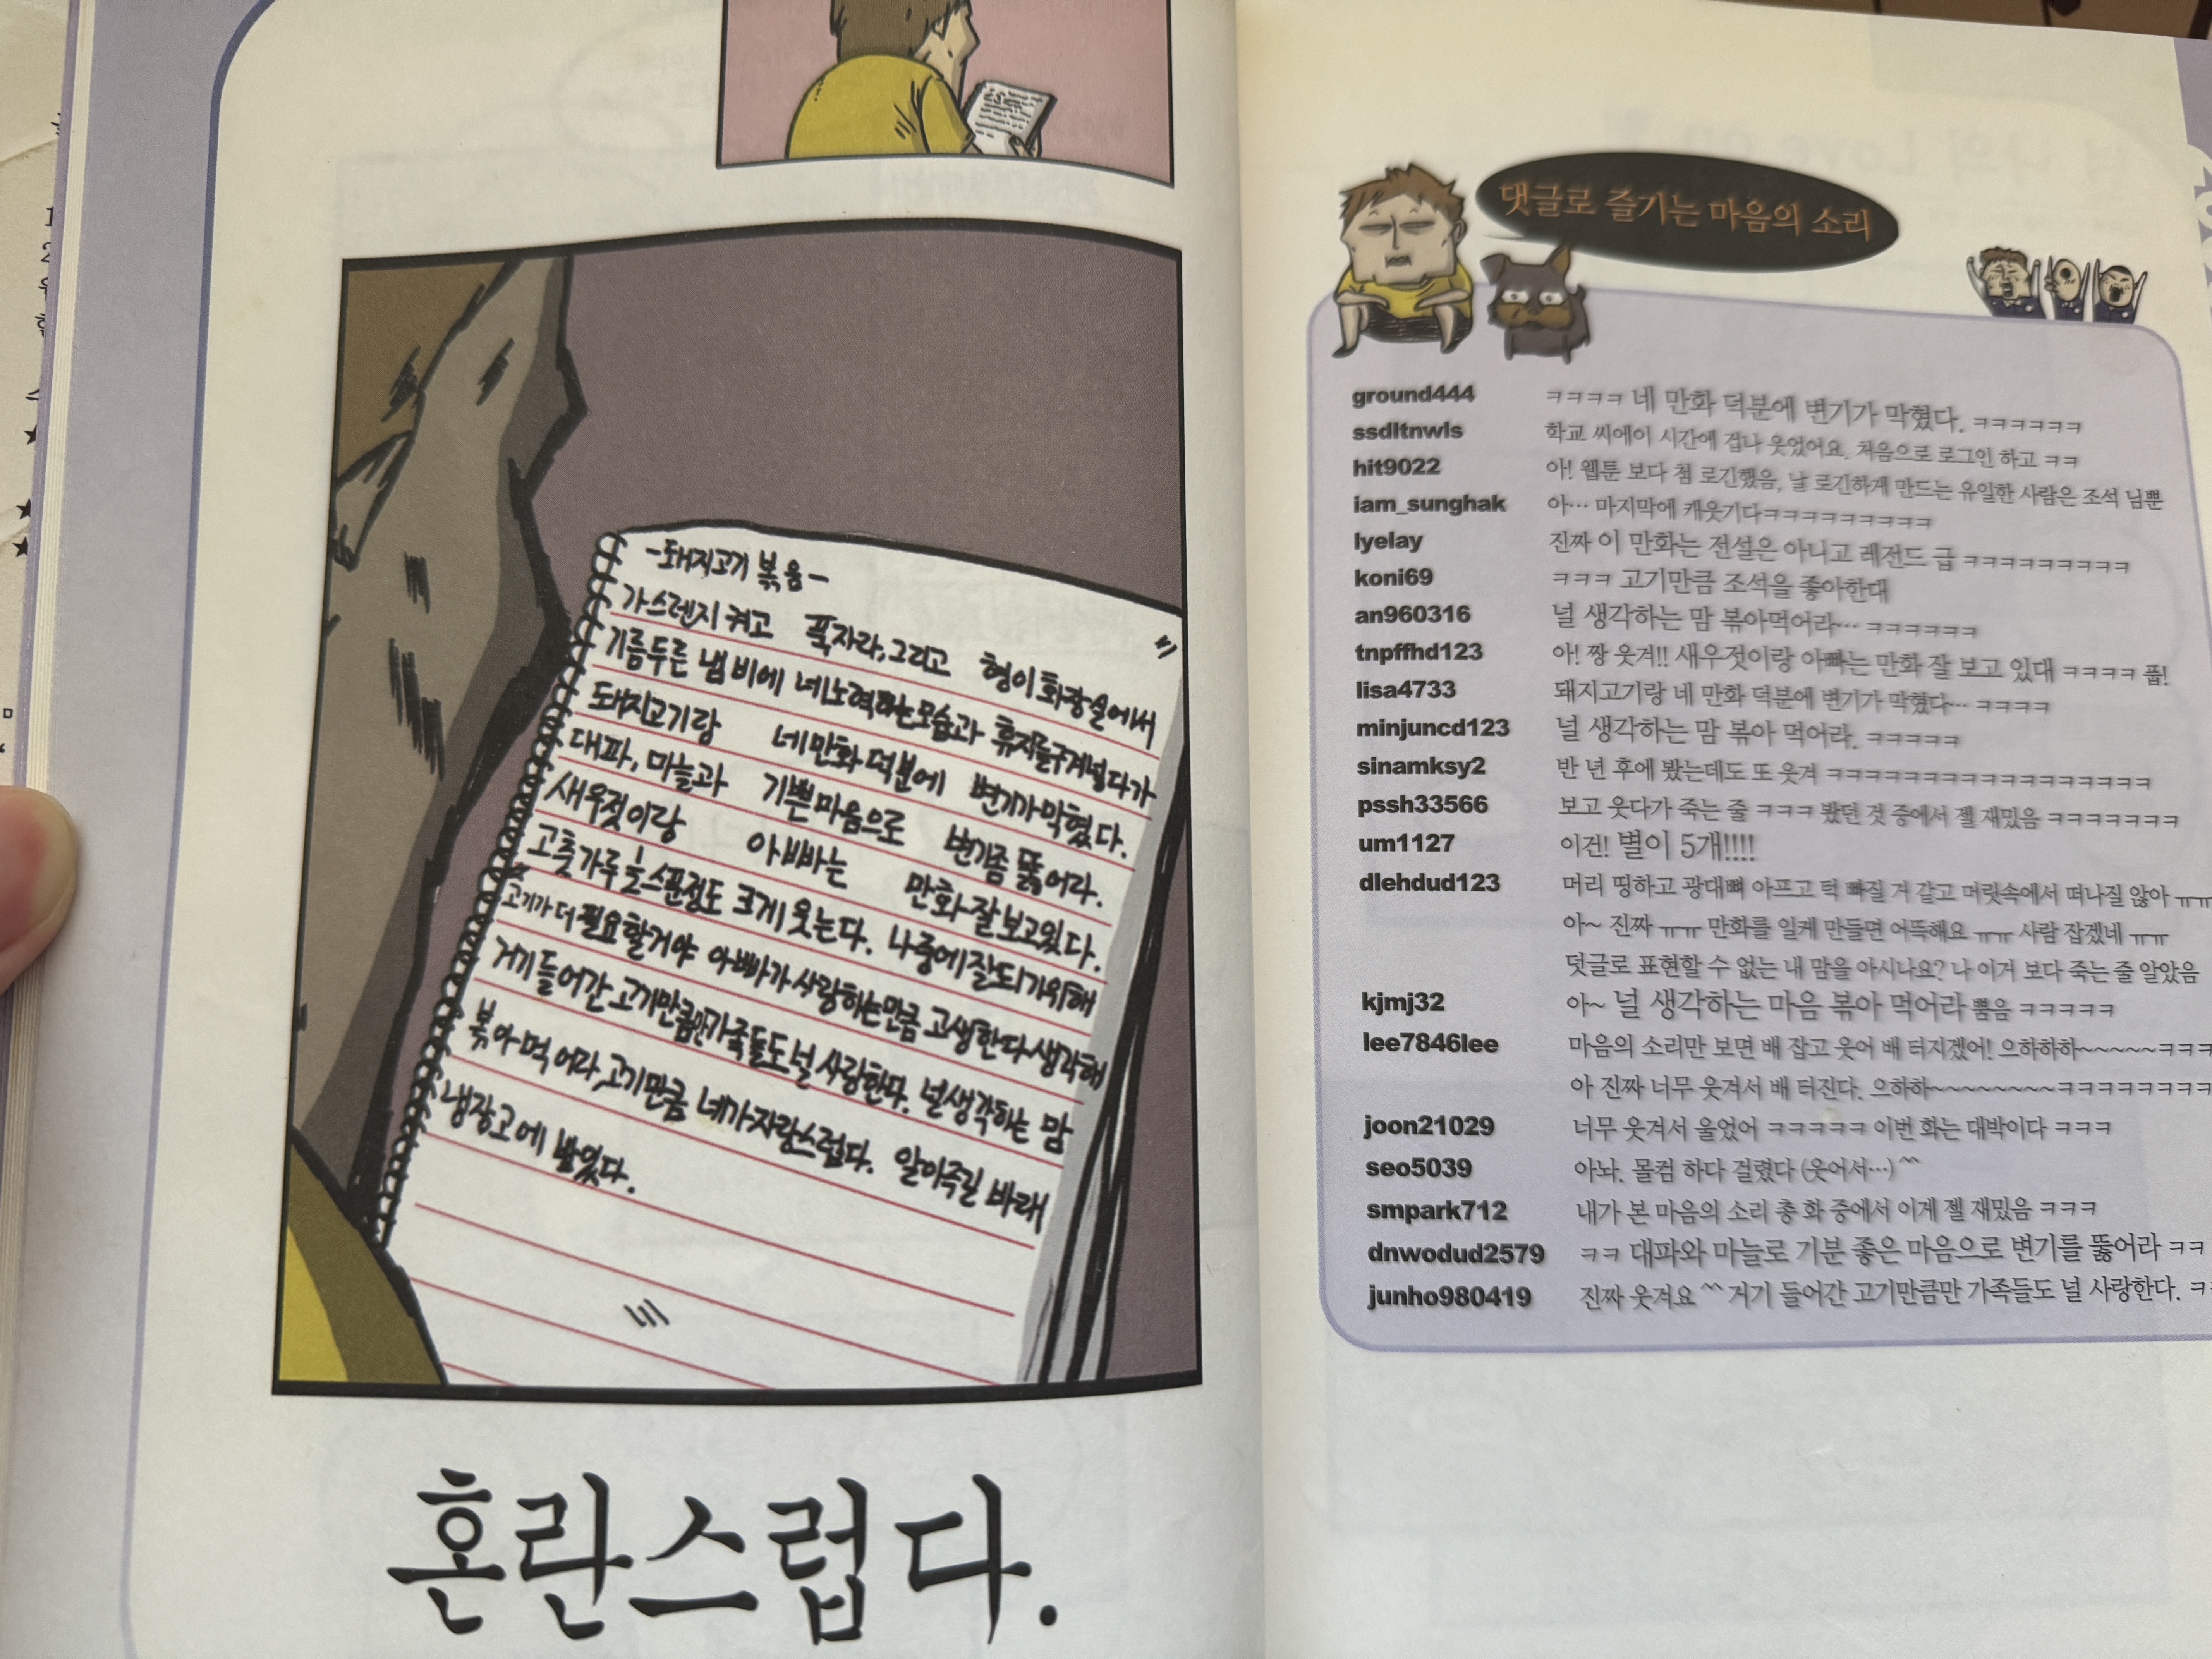 -돼지고기 볶음-
가스렌지 켜고 푹자라, 그리고 형이 화장실에서
기름두른 냄비에 네 노력하는 모습과 휴지들구겨넣다가
돼지고기랑 네 만화 덕분에 변기가 막혔다.
대파, 마늘과 기쁜 마음으로 변기좀 뚫어라.
새우젓이랑 아빠는 만화 잘 보고 있다.
고춧가루 한스푼정도 크게 웃는다. 나중에 잘되기 위해
고기가 더 필요할거야 아빠가 사랑하는만큼 고생한다 생각해
거기 들어간 고기만큼만 가족들도 널 사랑한다. 널 생각하는 맘
볶아 먹어라, 고기만큼 네가 자랑스럽다. 알아주길 바래
냉장고에 놨었다.
혼란스럽다.
댓글로 즐기는 마음의 소리
ground444 ㅋㅋㅋㅋ 네 만화 덕분에 변기가 막혔다. ㅋㅋㅋㅋㅋㅋ
ssdltnwls 학교 씨에이 시간에 겁나 웃었어요. 처음으로 로그인 하고 ㅋㅋ
hit9022 아! 웹툰 보다 첨 로긴했음, 날 로긴하게 만드는 유일한 사람은 조석 님뿐
iam_sunghak 아… 마지막에 캐웃기다ㅋㅋㅋㅋㅋㅋㅋㅋㅋ
lyelay 진짜 이 만화는 전설은 아니고 레전드 급 ㅋㅋㅋㅋㅋㅋㅋㅋㅋ
koni69 ㅋㅋㅋ 고기만큼 조석을 좋아한대
an960316 널 생각하는 맘 볶아먹어라… ㅋㅋㅋㅋㅋㅋ
tnpffhd123 아! 짱 웃겨!! 새우젓이랑 아빠는 만화 잘 보고 있대 ㅋㅋㅋㅋ 풉!
lisa4733 돼지고기랑 네 만화 덕분에 변기가 막혔다… ㅋㅋㅋㅋ
minjuncd123 널 생각하는 맘 볶아 먹어라. ㅋㅋㅋㅋㅋ
sinamksy2 반 년 후에 봤는데도 또 웃겨 ㅋㅋㅋㅋㅋㅋㅋㅋㅋㅋㅋㅋㅋㅋㅋㅋㅋ
pssh33566 보고 웃다가 죽는 줄 ㅋㅋㅋ 봤던 것 중에서 젤 재밌음 ㅋㅋㅋㅋㅋㅋㅋ
um1127 이건! 별이 5개!!!!
dlehdud123 머리 띵하고 광대뼈 아프고 턱 빠질 거 같고 머릿속에서 떠나질 않아 ㅠㅠ
아~ 진짜 ㅠㅠ 만화를 일케 만들면 어뜩해요 ㅠㅠ 사람 잡겠네 ㅠㅠ
덧글로 표현할 수 없는 내 맘을 아시나요? 나 이거 보다 죽는 줄 알았음
kjmj32 아~ 널 생각하는 마음 볶아 먹어라 뿜음 ㅋㅋㅋㅋㅋ
lee7846lee 마음의 소리만 보면 배 잡고 웃어 배 터지겠어! 으하하하~~~~~ㅋㅋㅋ
아 진짜 너무 웃겨서 배 터진다. 으하하~~~~~~~~ㅋㅋㅋㅋㅋㅋㅋㅋ
joon21029 너무 웃겨서 울었어 ㅋㅋㅋㅋㅋ 이번 화는 대박이다 ㅋㅋㅋ
seo5039 아놔. 몰컴 하다 걸렸다 (웃어서…) ^^
smpark712 내가 본 마음의 소리 총 화 중에서 이게 젤 재밌음 ㅋㅋㅋ
dnwodud2579 ㅋㅋ 대파와 마늘로 기분 좋은 마음으로 변기를 뚫어라 ㅋㅋ
junho980419 진짜 웃겨요 ^^ 거기 들어간 고기만큼만 가족들도 널 사랑한다. ㅋ